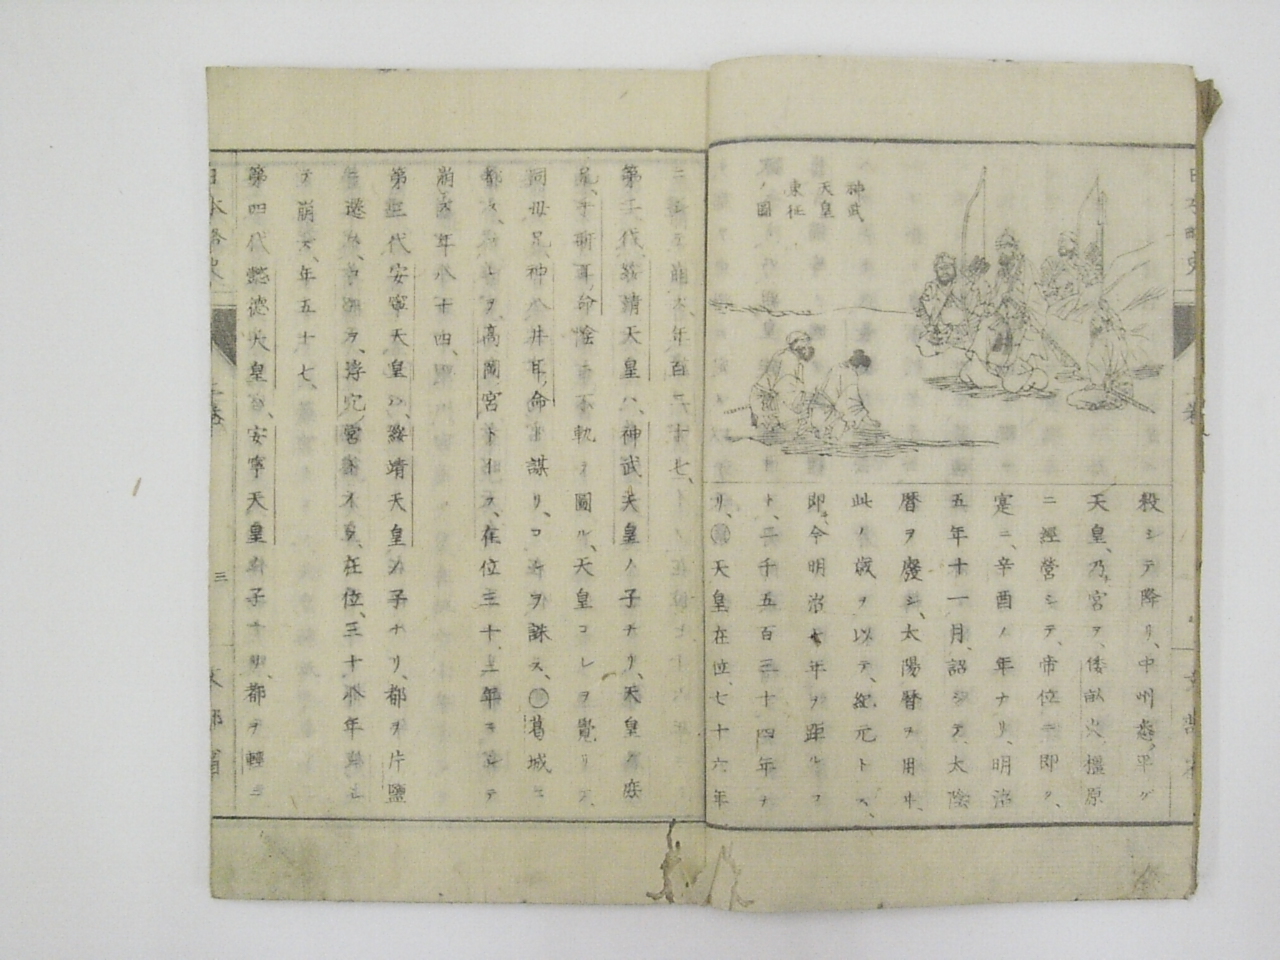 神武
天皇
東征
ノ圖
殺シテ降リ、中州悉ク平グ
天皇、乃宮ヲ、倭畝火、橿原
ニ經營シテ、帝位ニ即ク、
寔ニ、辛酉ノ年ナリ、明治
五年十一月、詔シテ、太陰
暦ヲ廢シ、太陽暦ヲ用ヰ、
此ノ歳ヲ以テ、紀元トス、
即、今明治七年ヲ距ルコ
ト、二千五百三十四年ナ
リ、天皇在位、七十六年
ニシテ崩ス、年百二十七、
第二代、綏靖天皇ハ、神武天皇ノ子ナリ、天皇ノ庶
兄、手研耳命、陰ニ不軌ヲ圖ル、天皇コレヲ覺リ、
同母兄、神八井耳命ト謀リ、コレヲ誅ス、葛城ニ
都ス、高岡宮トイフ、在位三十三年ニシテ
崩ス、年八十四、
第三代、安寧天皇ハ、綏靖天皇ノ子ナリ、都ヲ片鹽
ニ遷ス、浮穴宮トイフ、在位、三十八年ニシ
テ崩ス、年五十七、
第四代、懿德天皇ハ、安寧天皇ノ子ナリ、都ヲ輕ニ
日本略史
上卷
三
文部省